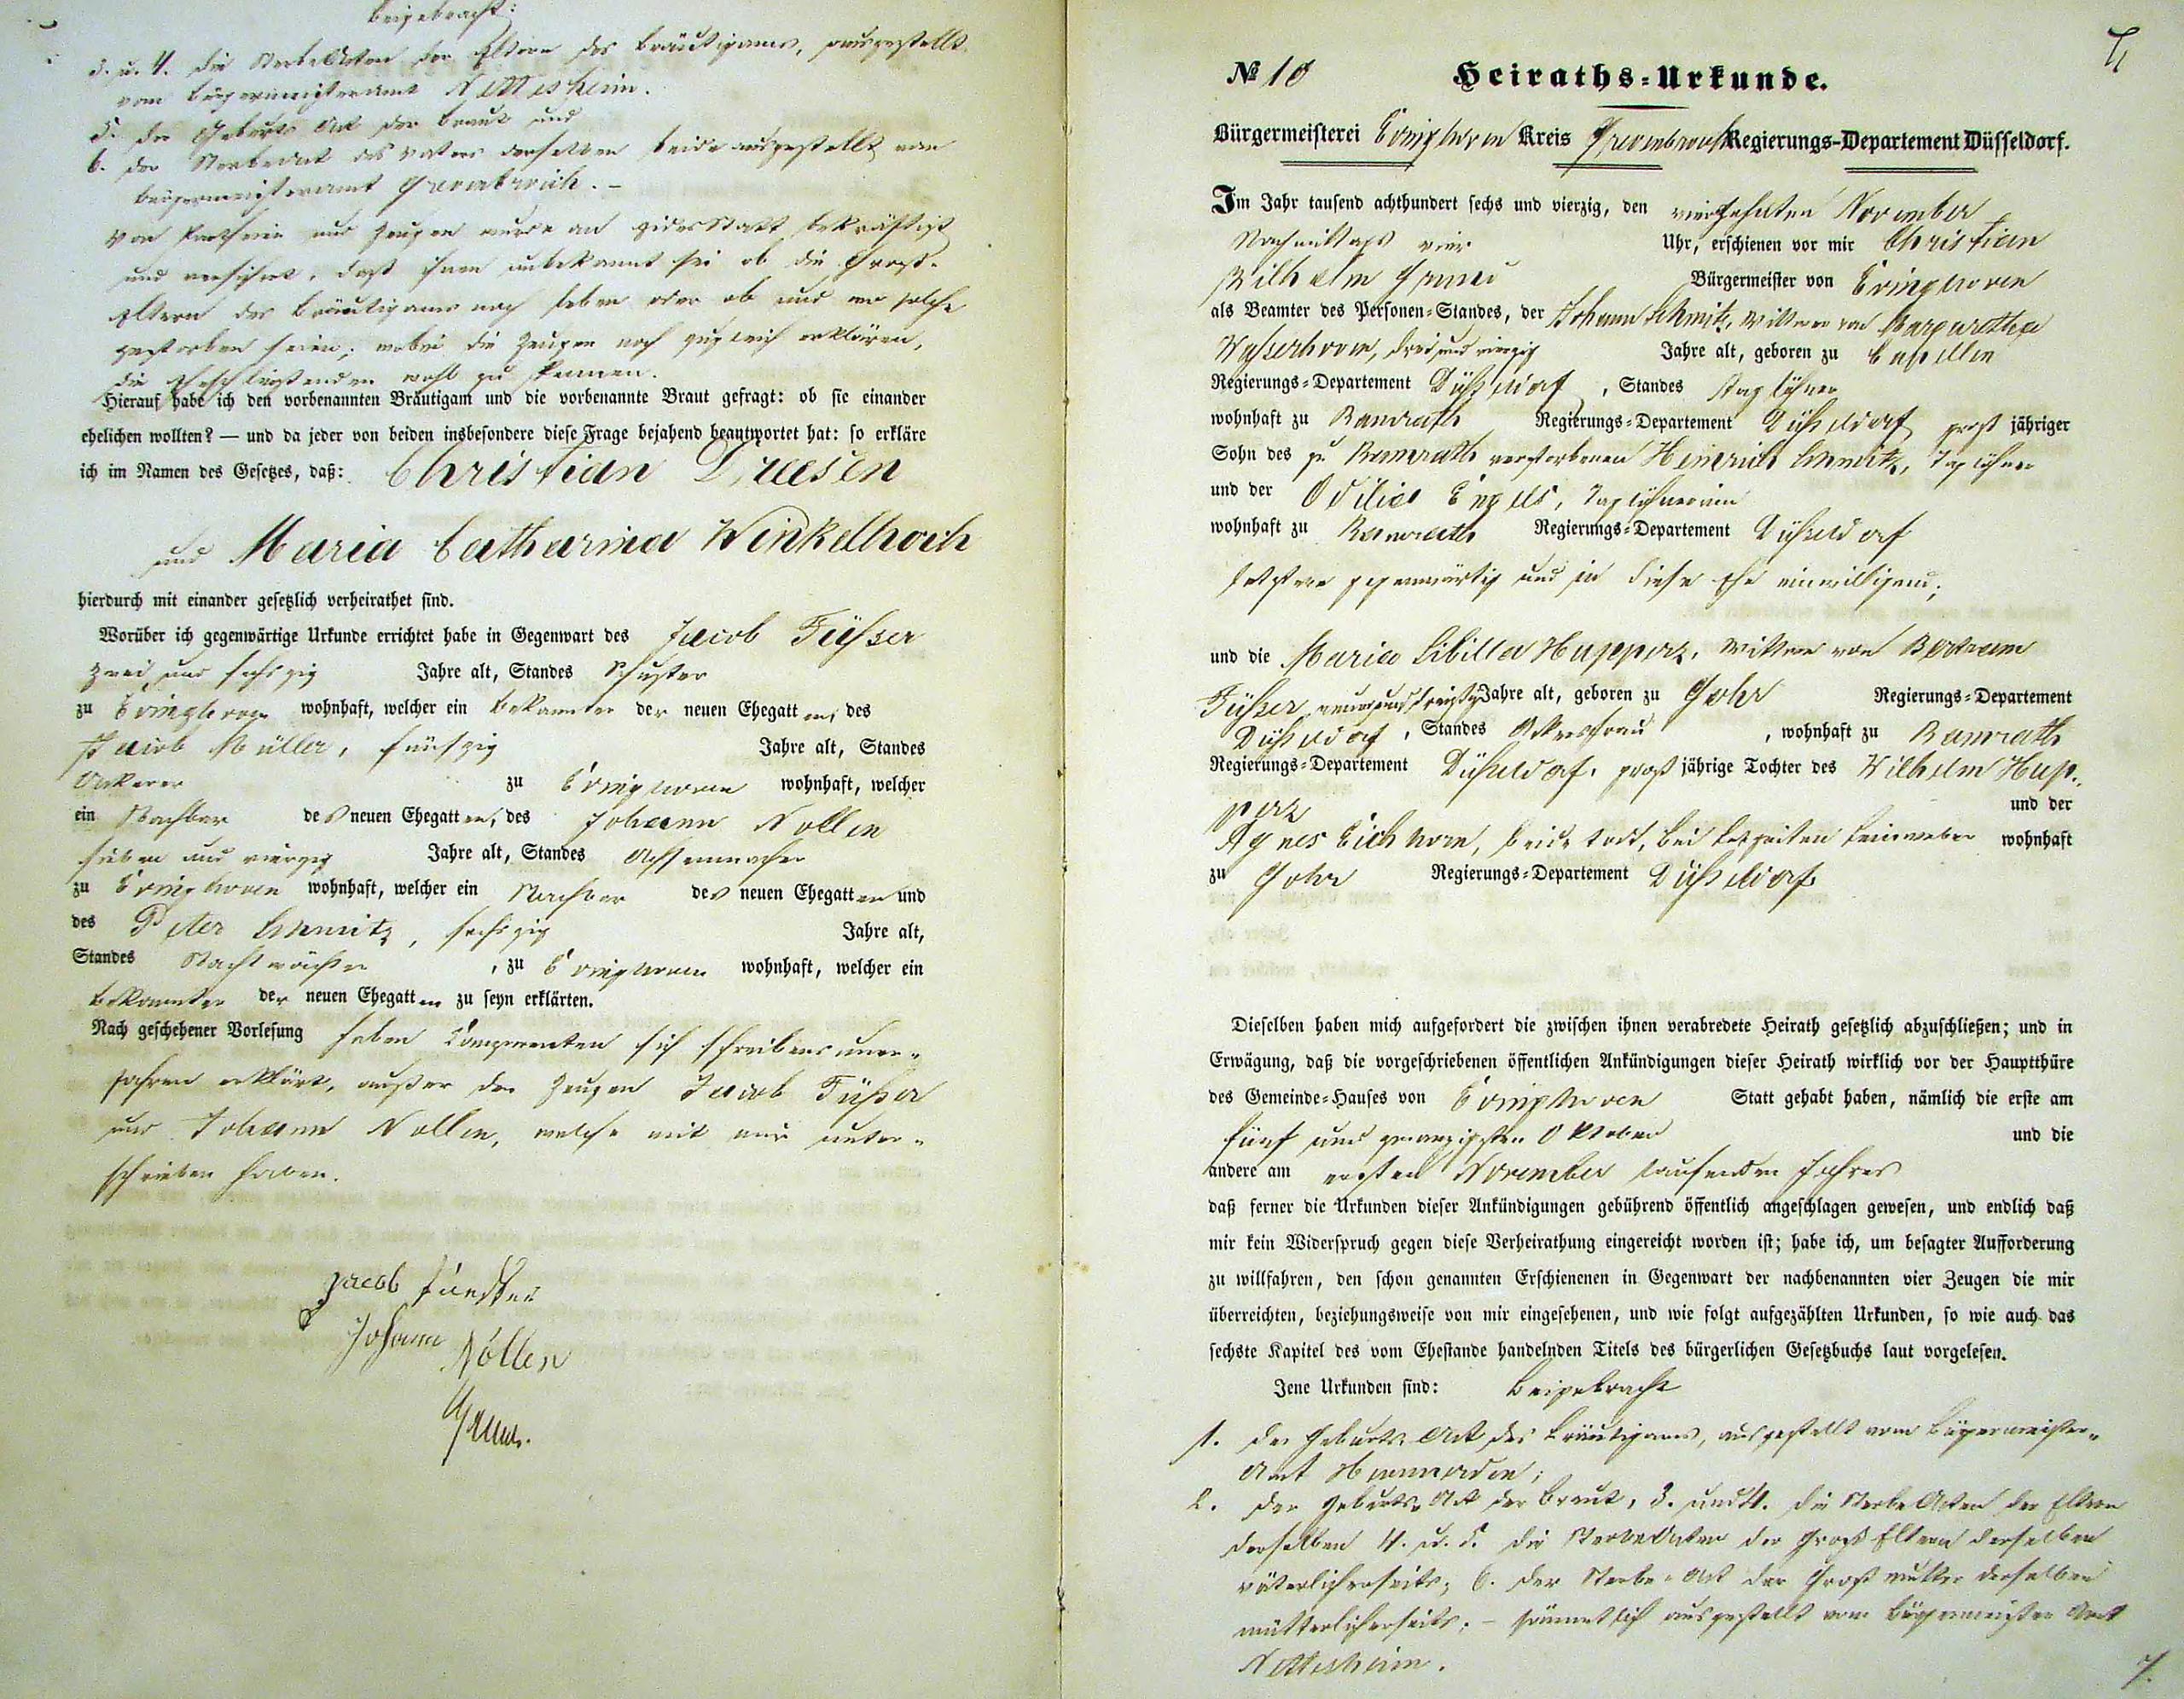 beigebracht:
3. u. 4. die Sterbe Akten der Eltern des Bräutigams, ausgestellt
vom Bürgermeisteramt Nettesheim.
5. der Geburts Act der Braut und
6. der Sterbeact des Vaters derselben beide ausgestellt vom
Bürgermeisteramt Grevenbroich. –
Von Partheien und Zeugen wurde an Eides Statt bekräftigt
und versichert, daß ihnen unbekannt sei ob die Groß-
eltern des Bräutigams noch leben oder ob und wo solche
gestorben seien; wobei die Zeugen noch zugleich erklären,
die Eheschließenden wohl zu kennen.
Hierauf habe ich den vorbenannten Bräutigam und die vorbenannte Braut gefragt: ob sie einander
ehelichen wollten? — und da jeder von beiden insbesondere diese Frage bejahend beantwortet hat: so erkläre
ich im Namen des Gesetzes, daß: Christian Driesen
und Maria Catharina Winkelhoch
hierdurch mit einander gesetzlich verheirathet sind.
Worüber ich gegenwärtige Urkunde errichtet habe in Gegenwart des Jacob Füßer
zwei und sechszig Jahre alt, Standes Schuster
zu Evinghoven wohnhaft, welcher ein Bekannter der neuen Ehegatten, des
Jacob Müller, fünfzig Jahre alt, Standes
Ackerer zu Evinghoven wohnhaft, welcher
ein Nachbar des neuen Ehegatten, des Johann Nollen
sieben und vierzig Jahre alt, Standes Achsenmacher
zu Evinghoven wohnhaft, welcher ein Nachbar des neuen Ehegatten und
des Peter Schmitz, sechszig Jahre alt,
Standes Nachtwächter, zu Evinghoven wohnhaft, welcher ein
Bekannter der neuen Ehegatten zu seyn erklärten.
Nach geschehener Vorlesung haben Comparenten sich schreibensuner-
fahren erklärt, außer den Zeugen Jacob Füßer
und Johann Nollen, welche mit mir unter-
schrieben haben.
Jacob füesser
Johann Nöllen
7
№ 10 Heiraths-Urkunde.
Bürgermeisterei Evinghoven Kreis Grevenbroich Regierungs-Departement Düsseldorf.
Im Jahr tausend achthundert sechs und vierzig, den vierzehnten November
Nachmittags vier Uhr, erschienen vor mir Christian
Wilhelm Bürgermeister von Evinghoven
als Beamter des Personen-Standes, der Johann Schmitz, Wittwer von Margaretha
drei und vierzig Jahre alt, geboren zu Capellen
Regierungs-Departement Düsseldorf, Standes Taglöhner
wohnhaft zu Ramrath Regierungs-Departement Düsseldorf groß jähriger
Sohn des zu Ramrath verstorbenen Heinrich Schmitz, Taglöhner
und der Odilia Engels, Taglöhnerinn
wohnhaft zu Ramrath Regierungs-Departement Düsseldorf
letztere gegenwärtig und in diese Ehe einwilligend;
und die Maria Sibilla Hupperz, Wittwe von Bertram
Füßer, neun und dreißig Jahre alt, geboren zu Gohr Regierungs-Departement
Düsseldorf, Standes Ackersfrau, wohnhaft zu Ramrath
Regierungs-Departement Düsseldorf, groß jährige Tochter des Wilhelm Hup-
perz und der
Agnes Eichhorn, beide todt, bei Lebzeiten Leinweber wohnhaft
zu Gohr Regierungs-Departement Düsseldorf
Dieselben haben mich aufgefordert die zwischen ihnen verabredete Heirath gesetzlich abzuschließen; und in
Erwägung, daß die vorgeschriebenen öffentlichen Ankündigungen dieser Heirath wirklich vor der Hauptthüre
des Gemeinde-Hauses von Evinghoven Statt gehabt haben, nämlich die erste am
fünf und zwanzigsten October und die
andere am ersten November laufenden Jahres
daß ferner die Urkunden dieser Ankündigungen gebührend öffentlich angeschlagen gewesen, und endlich daß
mir kein Widerspruch gegen diese Verheirathung eingereicht worden ist; habe ich, um besagter Aufforderung
zu willfahren, den schon genannten Erschienenen in Gegenwart der nachbenannten vier Zeugen die mir
überreichten, beziehungsweise von mir eingesehenen, und wie folgt aufgezählten Urkunden, so wie auch das
sechste Kapitel des vom Ehestande handelnden Titels des bürgerlichen Gesetzbuchs laut vorgelesen.
Jene Urkunden sind: beigebracht
1. der Geburts Act des Bräutigams, ausgestellt vom Bürgermeister-
Amt Hemmerden;
2. der Geburts Act der Braut, 3. und 4. die Sterbe Akten der Eltern
derselben 4. u. 5. die Sterbe Akten der Groß Eltern derselben
väterlicherseits; 6. der Sterbe-Act der Großmutter derselben
mütterlicherseits; – sämmtlich ausgestellt vom Bürgermeister Amt
Nettesheim.
7.